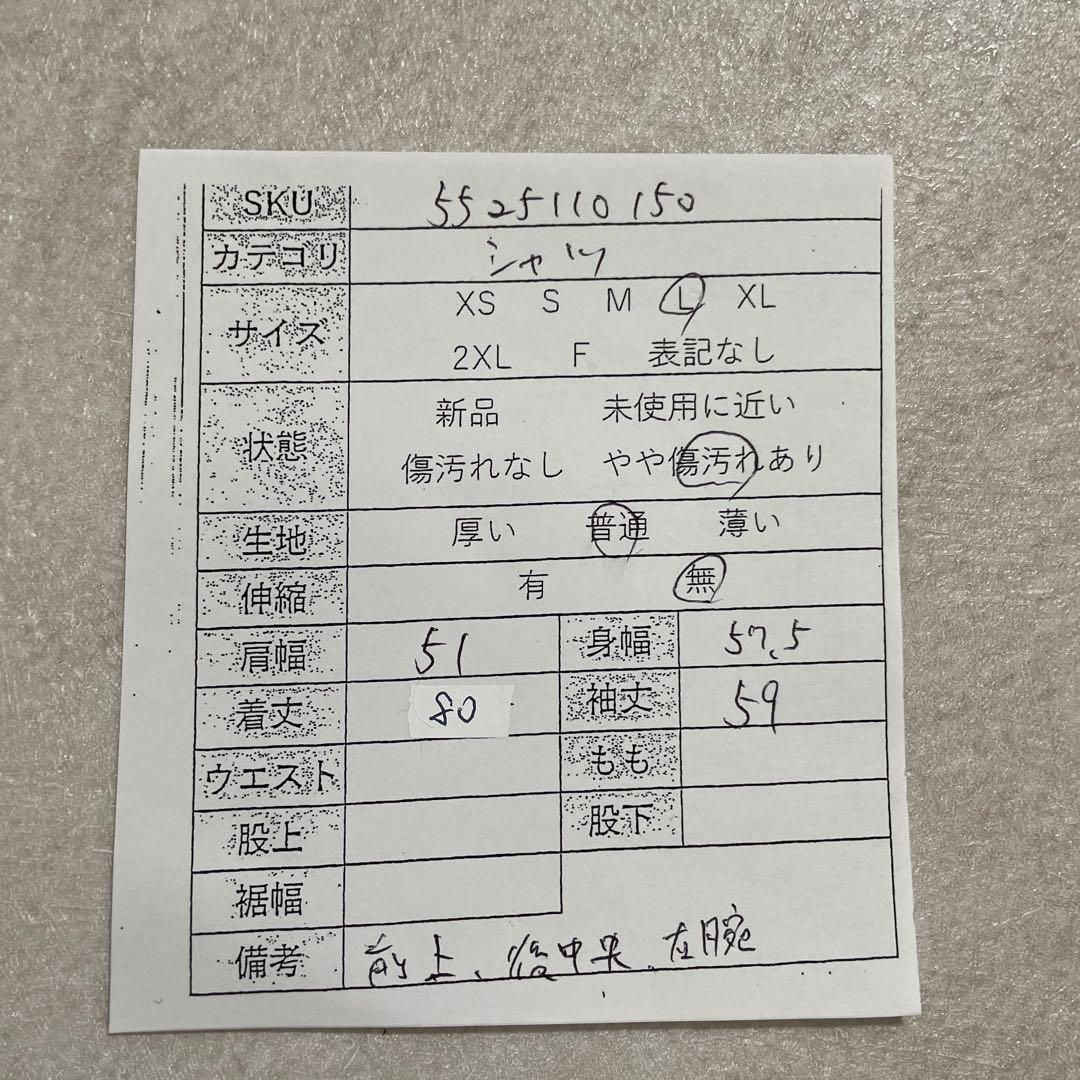 SKU 5525110150
カテゴリ シャツ
サイズ XS S M L XL
2XL F 表記なし
状態 新品 未使用に近い
傷汚れなし やや傷汚れあり
生地 厚い 普通 薄い
伸縮 有 無
肩幅 51 身幅 57.5
着丈 80 袖丈 59
ウエスト もも
股上 股下
裾幅
備考 前上、後中央、左腕